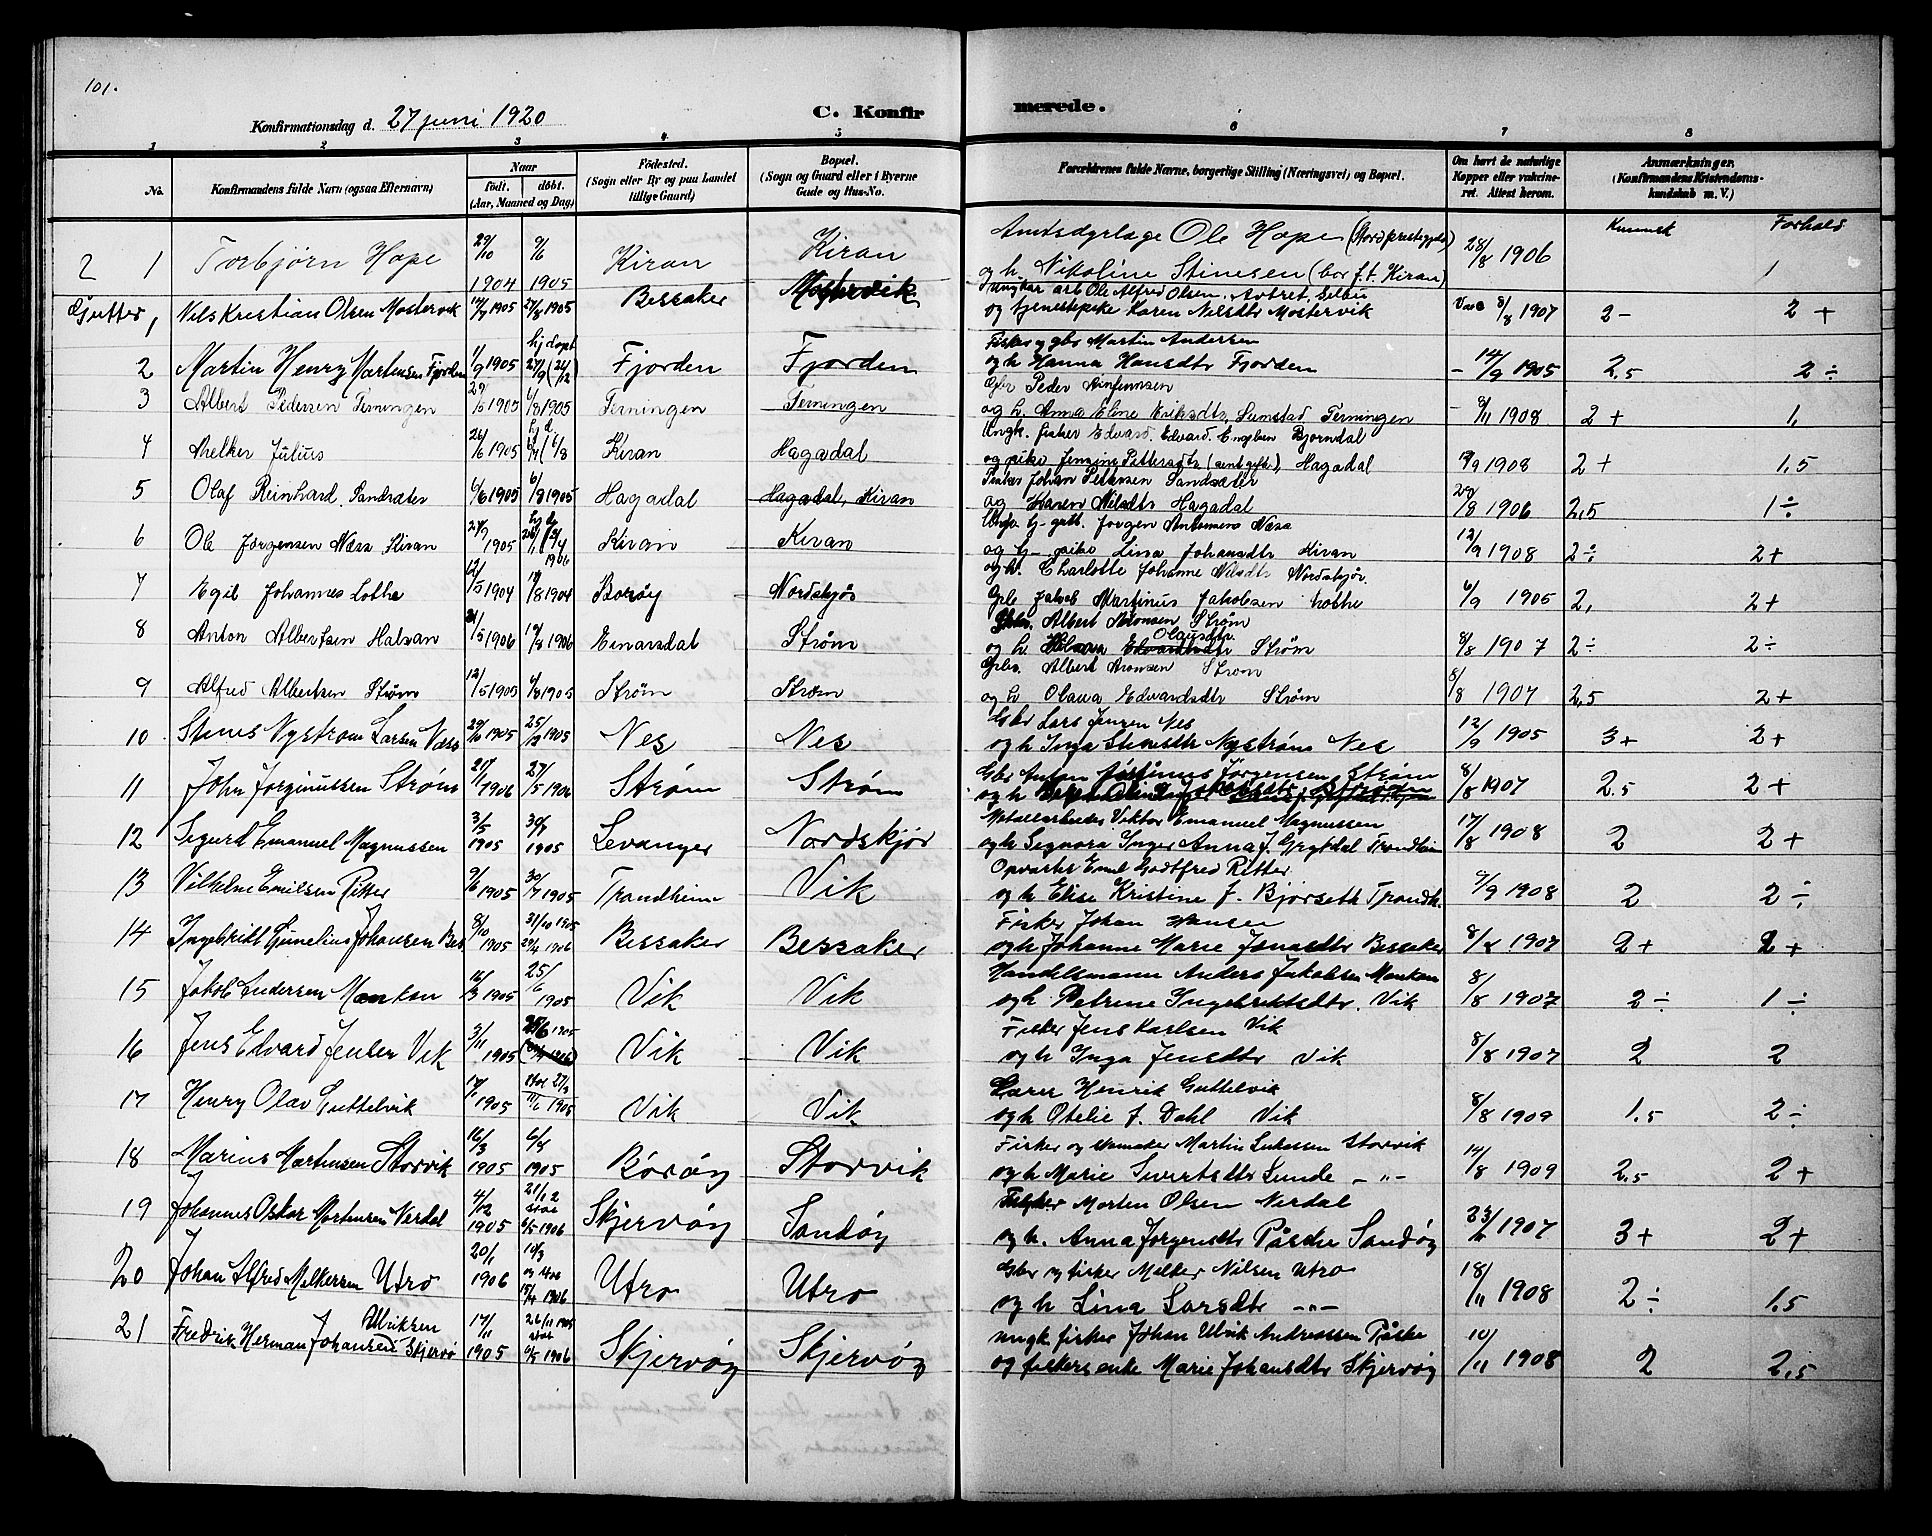 101.
Konfirmationsdag d. 27 juni 1920
C. Konfirmerede.
1 2 3 4 5 6 7 8
No. Konfirmandens fulde Navn (ogsaa Efternavn) Naar födt. döbt. (Aar, Maaned og Dag) Födested. (Sogn eller By og paa Landet tillige Gaard) Bopæl. (Sogn og Gaard eller i Byerne Gade og Hus-No. Forældrenes fulde Navne, borgerlige Stilling (Næringsvei) og Bopæl. Om havt de naturlige Kopper eller vakcineret. Attest herom. Anmærkninger. (Konfirmandens Kristendomskundskab m. V.)
Forhold
2 1 Torbjørn Hope 29/10 1904 9/6 1905 Kiran Kiran Ole Hope
og h. Nikoline Stinesen (bor f.t. Kiran) 28/8 1906 1
Gutter 1 Nils Kristian Olsen Mostervik 1905 27/8 1905 Bessaker Mostervik Ungkar arb Ole Alfred Olsen. Selbu
og tjenestepike Karen Nilsdtr Mostervik 8/8 1907 2- 2+
2 Martin Henry Martinsen Fjorden 1/9 1905 hj døpt 27/9 (26/12 Fjorden Fjorden Fisker og gbr Martin Andersen
og h Hanna Hansdtr Fjorden - 14/9 1905 2,5 2÷
3 Albert Pedersen Terningen 29/6 1905 6/8 1905 Terningen Terningen Gbr Peder
og h. Anna Eline Eriksdtr, Sumstad Terningen - 9/11 1908 2+ 1,
4 Melker Julius 26/6 1905 Kiran Hagadal Ungk. fisker Edvard. Edvard. Engelsen Bjørndal
og pike Jensine Pettersdtr Hagadal 1908 2+ 1,5
5 Olaf Reinhard Sandsæter 6/6 1905 6/8 1905 Hagadal Hagadal, Kiran Fisker Johan Petersen Sandsæter
og Karen Nilsdtr Hagadal 29/8 1906 2,5 1÷
6 Ole Jørgensen Næss Kiran 1905 1906 Kiran Kiran Jørgen Antonsens Næss
og pike Lina Johansdtr Kiran 12/9 1908 2÷ 2+
7 Egil Johannes Lothe 12/5 1904 1904 Borøy Nordskjør og h. Charlotte Johanne Nilsdtr Nordskjør.
Gbr Jakob Martinus Jakobsen Lothe 6/9 1905 2, 2+
8 Anton Albertsen Halvan 1906 1906 Einarsdal Strøm Gbr. Albert Aronsen Strøm
og h. Olausdtr. Strøm 8/8 1907 2÷ 2÷
9 Alfred Albertsen Strøm 12/5 1905 1905 Strøm Strøm Gbr. Albert Aronsen Strøm
og h Olava Edvardsdtr Strøm 8/8 1907 2,5 2+
10 Stines Nystrøm Larsen Næss 29/10 1905 25/12 1905 Nes Nes Gbr Lars Jensen Nes
og h Inga Stinesdtr Nystrøm Nes 12/9 1905 3+ 2+
11 John Jørginussen Strøm 21/1 1906 27/5 1906 Strøm Strøm Gbr Anton Jørginus Jørgensen Strøm
og h 8/8 1907 2.5 2+
12 Sigurd Emanuel Magnussen 3/5 1905 30/7 1905 Levanger Nordskjør Metallarbeider Viktor Emanuel Magnussen
og h Signora Inger Anna J. Grytdal Trondheim 17/8 1908 2 2+
13 Vilhelm Emilsen Ritter 9/6 1905 30/7 1905 Trondheim Vik Opvarter Emil Godtfred Ritter
og h Elise Kristine J. Bjørseth Trondh. 9/9 1908 2 2÷
14 Ingebrikt Gunelius Johansen Bes 8/10 1905 31/10 1905 29/4 1906 Bessaker Bessaker Fisker Johan Hansen
og h Johanne Marie Jonasdtr Bessaker 8/8 1907 2+ 2+
15 Jakob Andersen Monkan 16/3 1905 25/6 1905 Vik Vik Handelsmann Anders Jakobsen Monkan
og h Petrine Ingebriktsdtr. Vik 8/8 1907 2÷ 1÷
16 Jens Edvard Jensen Vik 3/11 1905 1905 Vik Vik Fisker Jens Karlsen Vik
og h Inga Jensdtr Vik 8/8 1907 2 2
17 Henry Olav Guttelvik 1905 1905 Vik Vik Lærer Henrik Guttelvik
og h Otelie J. Dahl Vik 8/8 1909 1.5 2÷
18 Marius Martinsen Storvik 16/3 1905 6/8 1905 Børøy Storvik Fisker og Martin Lukassen Storvik
og h Marie Sivertsdtr Sunde -"- 14/8 1909 2,5 2+
19 Johannes Oskar Mortensen Nerdal 4/12 1905 21/12 6/5 1906 Skjervøy Sandøy Fisker Morten Olsen Nerdal
og h. Anna Jørgensdtr Påske Sandøy 1907 3+ 2+
20 Johan Alfred Melkersen Utro 20/1 1906 1906 Utro Utro Gbr og fisker Melker Nilsen Utro
og h Lina Larsdtr -"- 18/11 1908 2÷ 1,5
21 Fredrik Herman Johansen Ulriksen Skjervø 17/11 1905 26/11 1905 6/5 1906 Skjervøy Skjervøy ungk. fisker Johan Ulrik Andreassen Påske
og fiskers enke Marie Johansdtr Skjervøy 10/11 1908 2 2,5